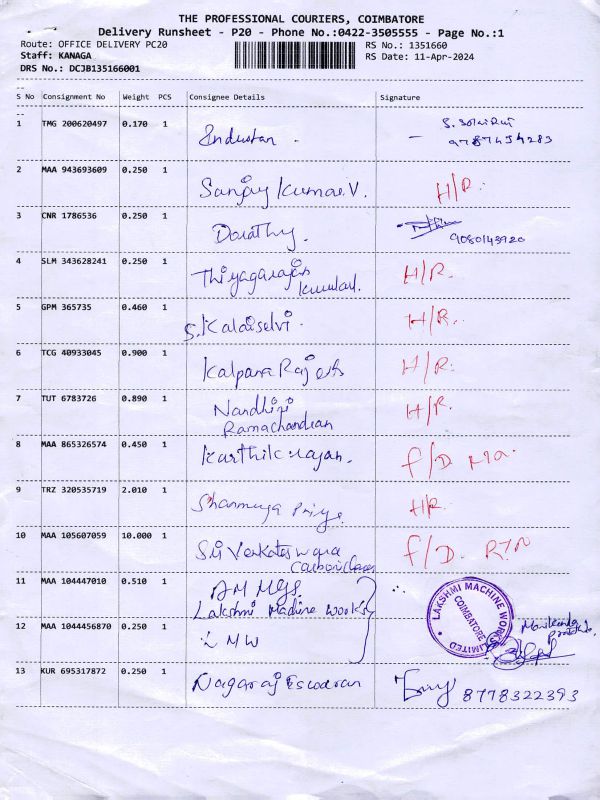 THE PROFESSIONAL COURIERS, COIMBATORE
Delivery Runsheet - P20 - Phone No.:0422-3505555 - Page No.:1
Route: OFFICE DELIVERY PC20 RS No.: 1351660
Staff: KANAGA RS Date: 11-Apr-2024
DRS No.: DCJB135166001
S No Consignment No Weight PCS Consignee Details Signature
1 TMG 200620497 0.170 1 Industan
9787454283
2 MAA 943693609 0.250 1 Sanjay Kumar.V. H/R.
3 CNR 1786536 0.250 1 Dorathy. 9080143920
4 SLM 343628241 0.250 1 Thiyagarajan H/R.
5 GPM 365735 0.460 1 S. Kalaiselvi. H/R.
6 TCG 40933045 0.900 1 Kalpana Rajesh H/R.
7 TUT 6783726 0.890 1 Nandhini H/R.
Ramachandran
8 MAA 865326574 0.450 1 Karthikrajan. F/D
9 TRZ 320535719 2.010 1 Shanmuga Priya. H/R
10 MAA 105607059 10.000 1 Sri Venkateswara F/D. RTN
11 MAA 104447010 0.510 1
Lakshmi Machine Works
LAKSHMI MACHINE WORKS LIMITED
COIMBATORE
12 MAA 1044456870 0.250 1 LMW
13 KUR 695317872 0.250 1 Nagaraj 8778322393